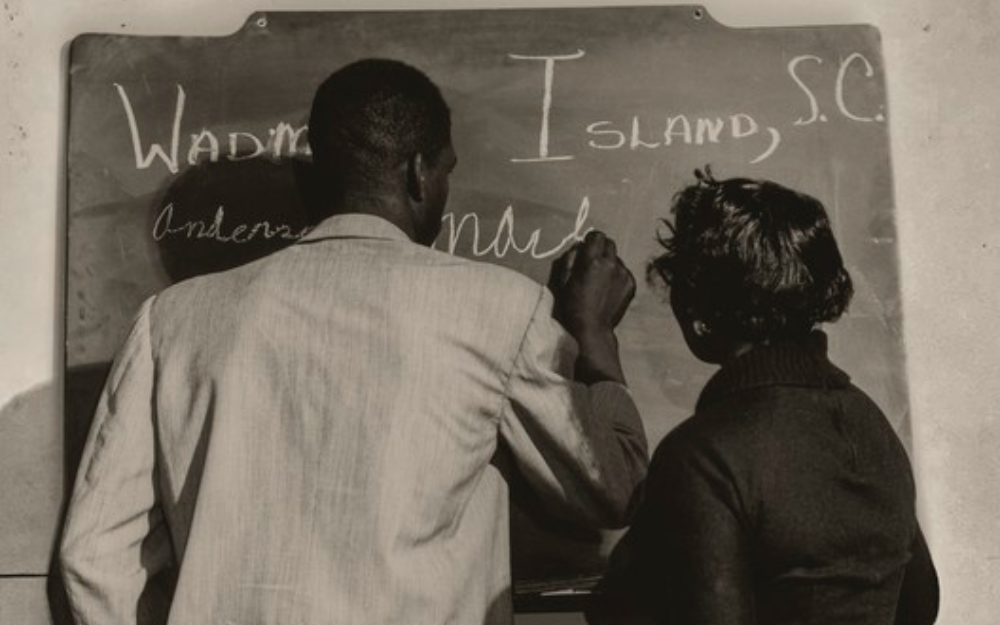 WADM ISLAND, S.C.
anders